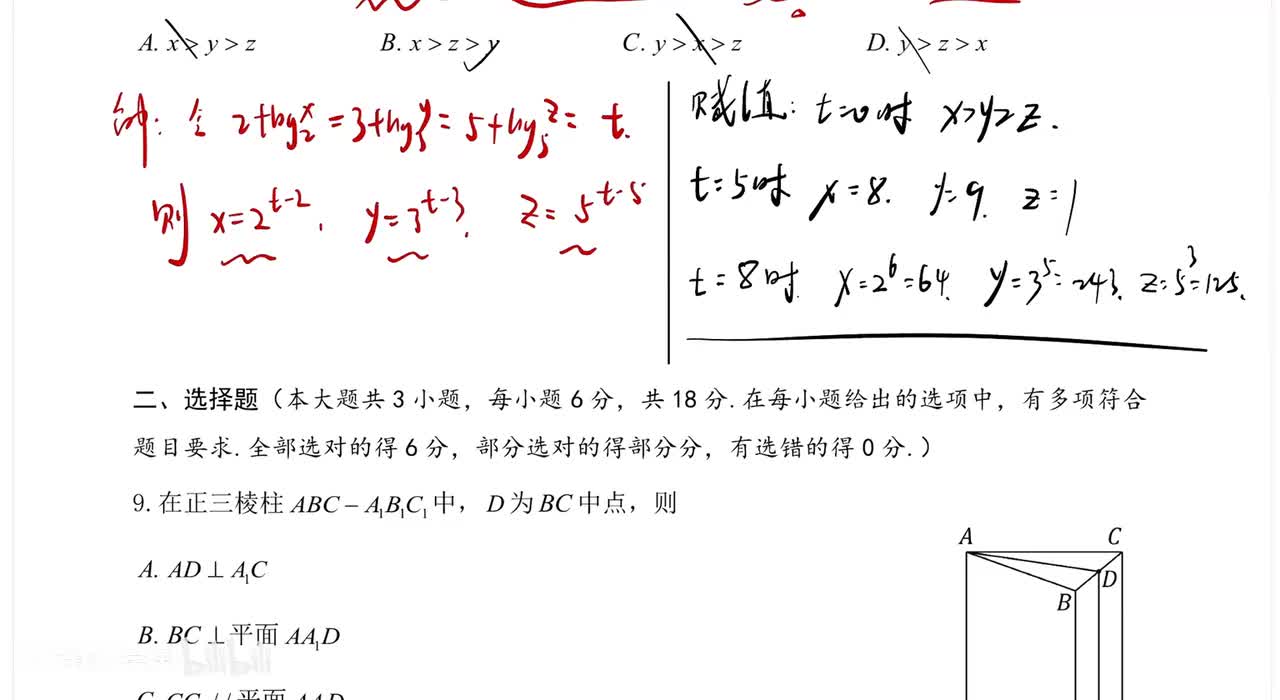 A. x > y > z B. x > z > y C. y > x > z D. y > z > x
解: 令 2+log₂x = 3+log₃y = 5+log₅z = t.
则 x=2^{t-2}, y=3^{t-3}, z=5^{t-5}
赋值: t=0时 x>y>z.
t=5时 x=8. y=9. z=1
t=8时 x=2⁶=64. y=3⁵=243. z=5³=125.
二、选择题（本大题共 3 小题，每小题 6 分，共 18 分. 在每小题给出的选项中，有多项符合
题目要求. 全部选对的得 6 分，部分选对的得部分分，有选错的得 0 分.）
9. 在正三棱柱 ABC − A₁B₁C₁ 中，D 为 BC 中点，则
A. AD ⊥ A₁C
B. BC ⊥ 平面 AA₁D
A
C
D
B
bilibili